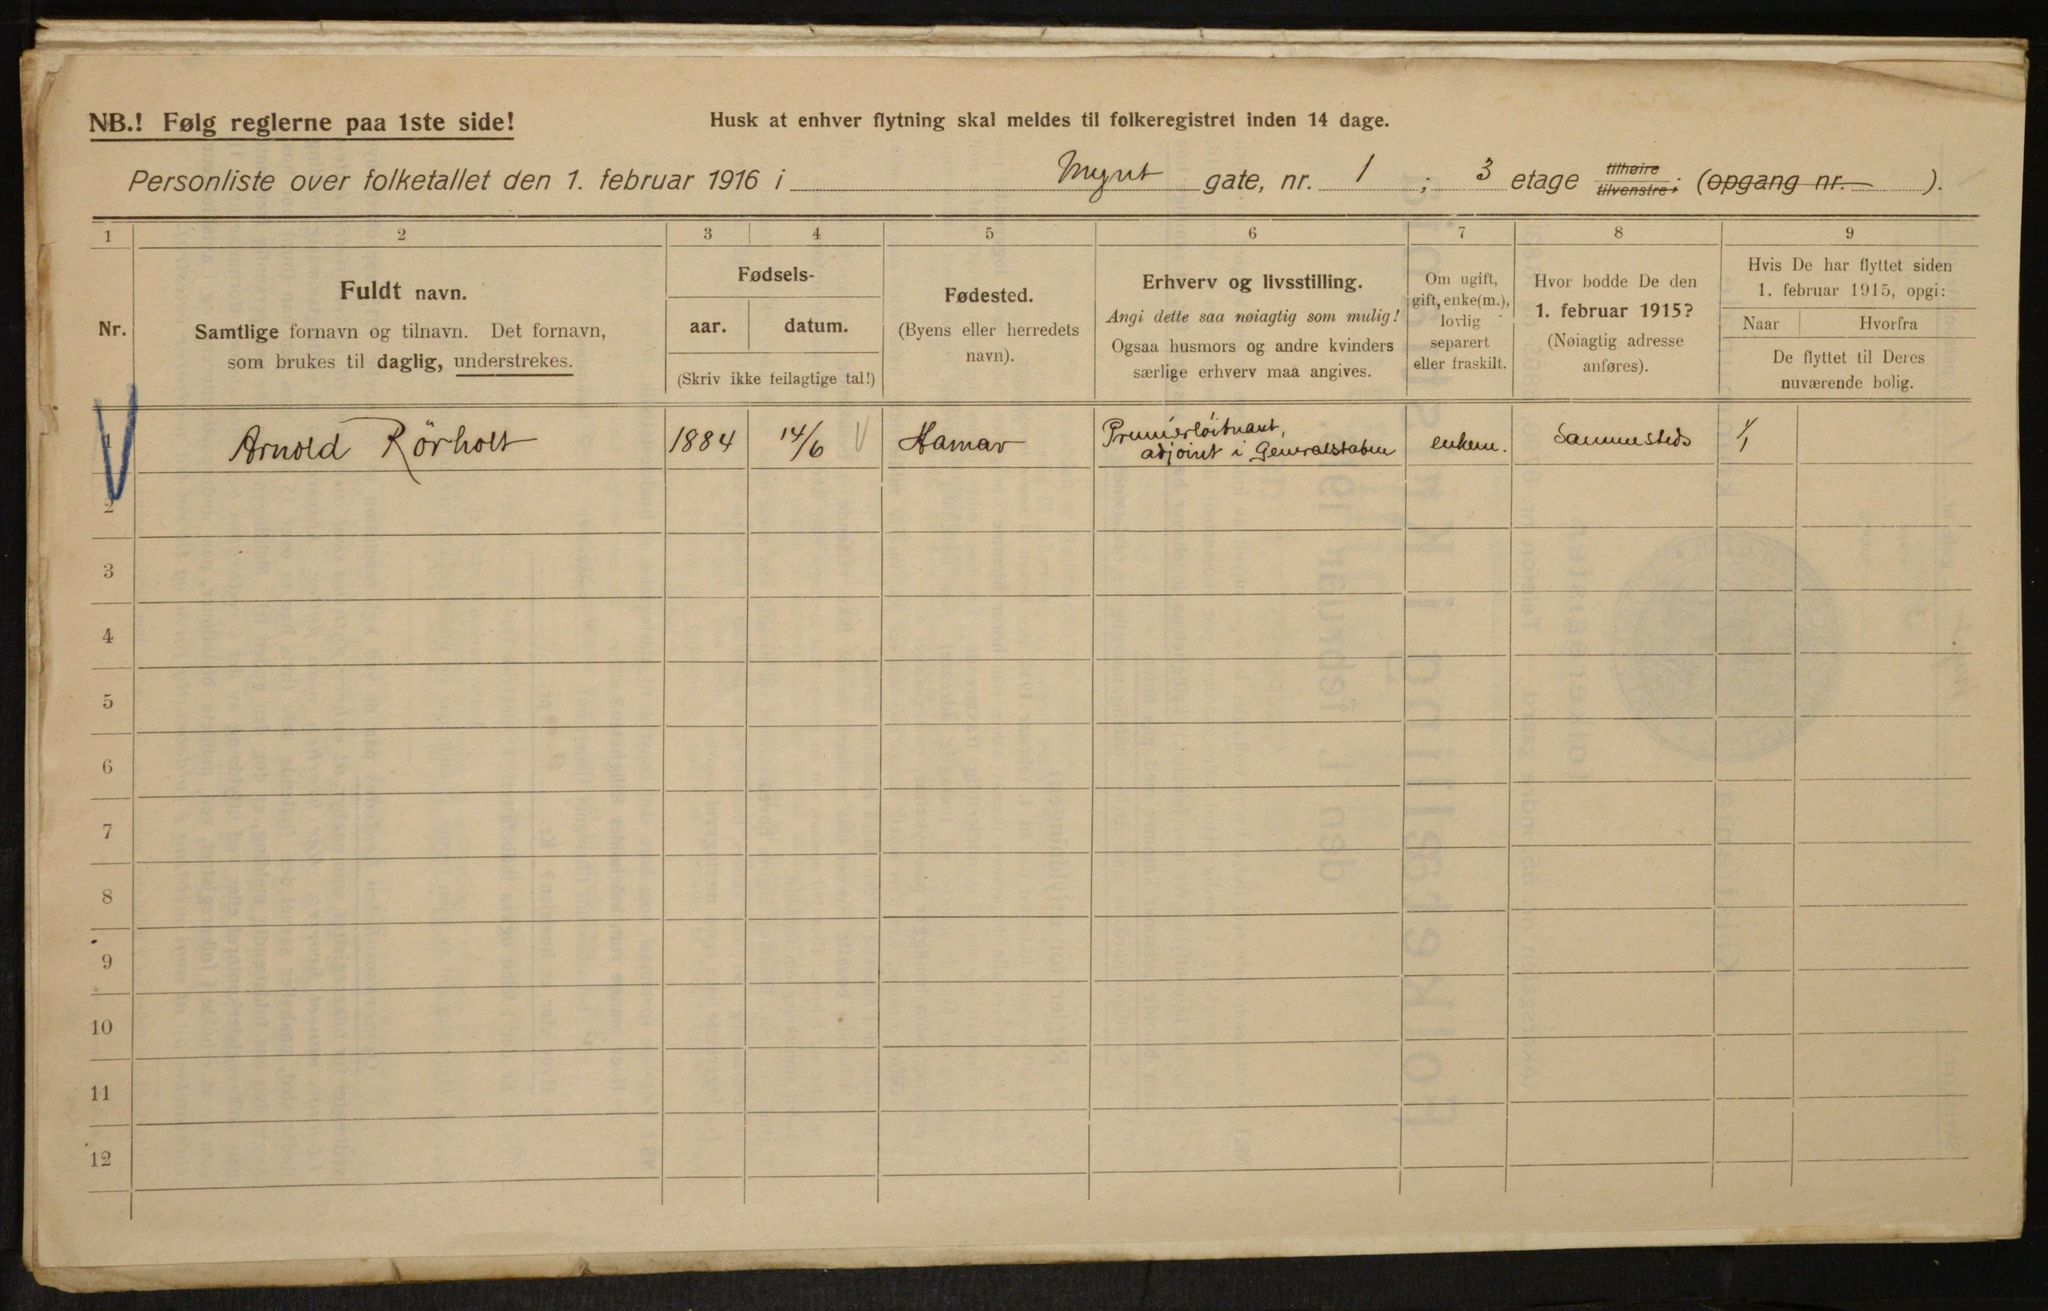 NB.! Følg reglerne paa 1ste side!
Husk at enhver flytning skal meldes til folkeregistret inden 14 dage.
Personliste over folketallet den 1. februar 1916 i Mynt gate, nr. 1 ; 3 etage tilhøire tilvenstre; (opgang nr. ).
1 2 3 4 5 6 7 8 9
Nr.
Fuldt navn.
Samtlige fornavn og tilnavn. Det fornavn,
som brukes til daglig, understrekes.
Fødsels-
aar. datum.
(Skriv ikke feilagtige tal!)
Fødested.
(Byens eller herredets
navn).
Erhverv og livsstilling.
Angi dette saa nøiagtig som mulig!
Ogsaa husmors og andre kvinders
særlige erhverv maa angives.
Om ugift,
gift, enke(m.),
lovlig
separert
eller fraskilt.
Hvor bodde De den
1. februar 1915?
(Nøiagtig adresse
anføres).
Hvis De har flyttet siden
1. februar 1915, opgi:
Naar Hvorfra
De flyttet til Deres
nuværende bolig.
1 Arnold Rörholt 1884 14/6 Hamar Premierlöitnant,
adjoint i Generalstaben enkem. Sammesteds 1/1
2
3
4
5
6
7
8
9
10
11
12